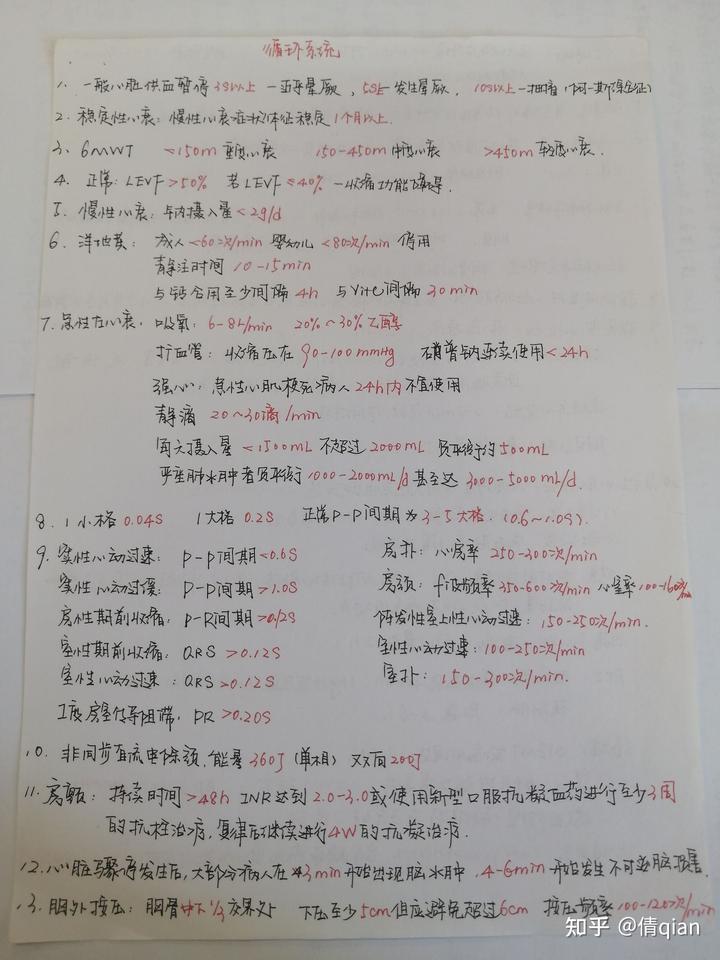 循环系统
1. 一般心脏供血暂停3s以上一近乎晕厥，5s以上一发生晕厥，10s以上一抽搐（阿-斯综合征）
2. 稳定性心衰：慢性心衰症状体征稳定1个月以上.
3. 6MWT <150m 重度心衰 150-450m 中度心衰 >450m 轻度心衰.
4. 正常：LEVF>50% 若LEVF≤40% 一收缩功能障碍.
5. 慢性心衰：钠摄入量<2g/d
6. 洋地黄：成人<60次/min 婴幼儿<80次/min 停用
静注时间 10-15min
与钙合用至少间隔 4h 与VitC间隔 30min
7. 急性左心衰：吸氧：6-8L/min 20%~30%乙醇
扩血管：收缩压在 90-100mmHg 硝普钠连续使用<24h
强心：急性心肌梗死病人24h内不宜使用
静滴 20~30滴/min
每天摄入量<1500mL 不超过2000mL 负平衡约500mL
严重肺水肿者负平衡1000-2000mL/d 甚至达 3000-5000mL/d.
8. 1小格 0.04s 1大格 0.2s 正常P-P间期为3-5大格.（0.6~1.0s）.
9. 窦性心动过速：P-P间期<0.6s 房扑：心房率 250-300次/min
窦性心动过缓：P-P间期>1.0s 房颤：f波频率 350-600次/min 心室率 100-160次/min
房性期前收缩：P-R间期>0.12s 阵发性室上性心动过速：150-250次/min.
室性期前收缩：QRS >0.12s 室性心动过速：100-250次/min
室性心动过速：QRS>0.12s 室扑：150-300次/min.
I度房室传导阻滞：PR>0.20s
10. 非同步直流电除颤.能量360J（单相） 双向200J
11. 房颤：持续时间>48h INR达到2.0-3.0或使用新型口服抗凝血药进行至少3周
的抗栓治疗，复律后继续进行4W的抗凝治疗.
12. 心脏骤停发生后，大部分病人在 3min开始出现脑水肿，4-6min开始发生不可逆脑损害.
13. 胸外按压：胸骨中下1/3交界处 下压至少5cm但应避免超过6cm 按压频率100-120次/min
知乎 @倩qian